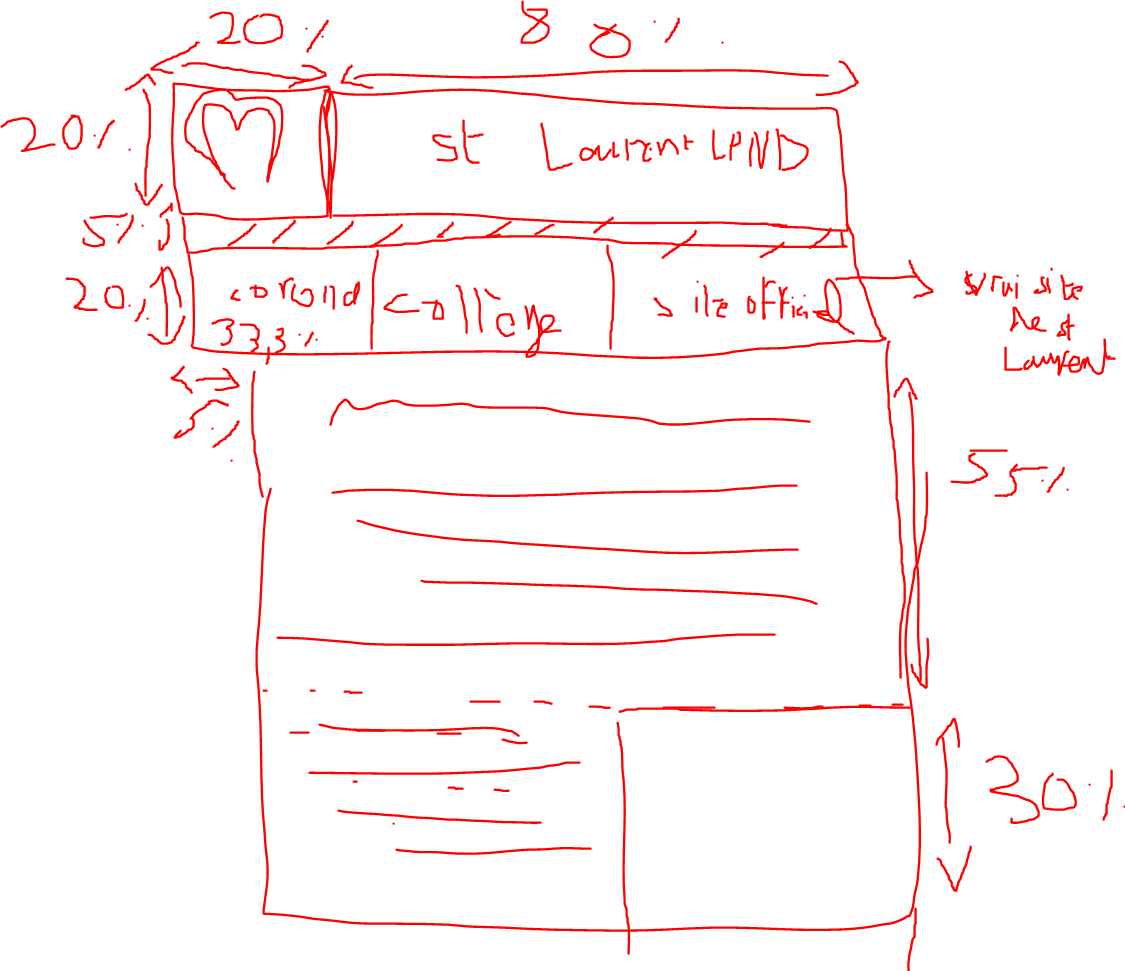 20%
80%
20%
st Laurent LPND
5%
20%
33,3%
collège
site officiel
vrai site
de st
Laurent
5%
55%
30%